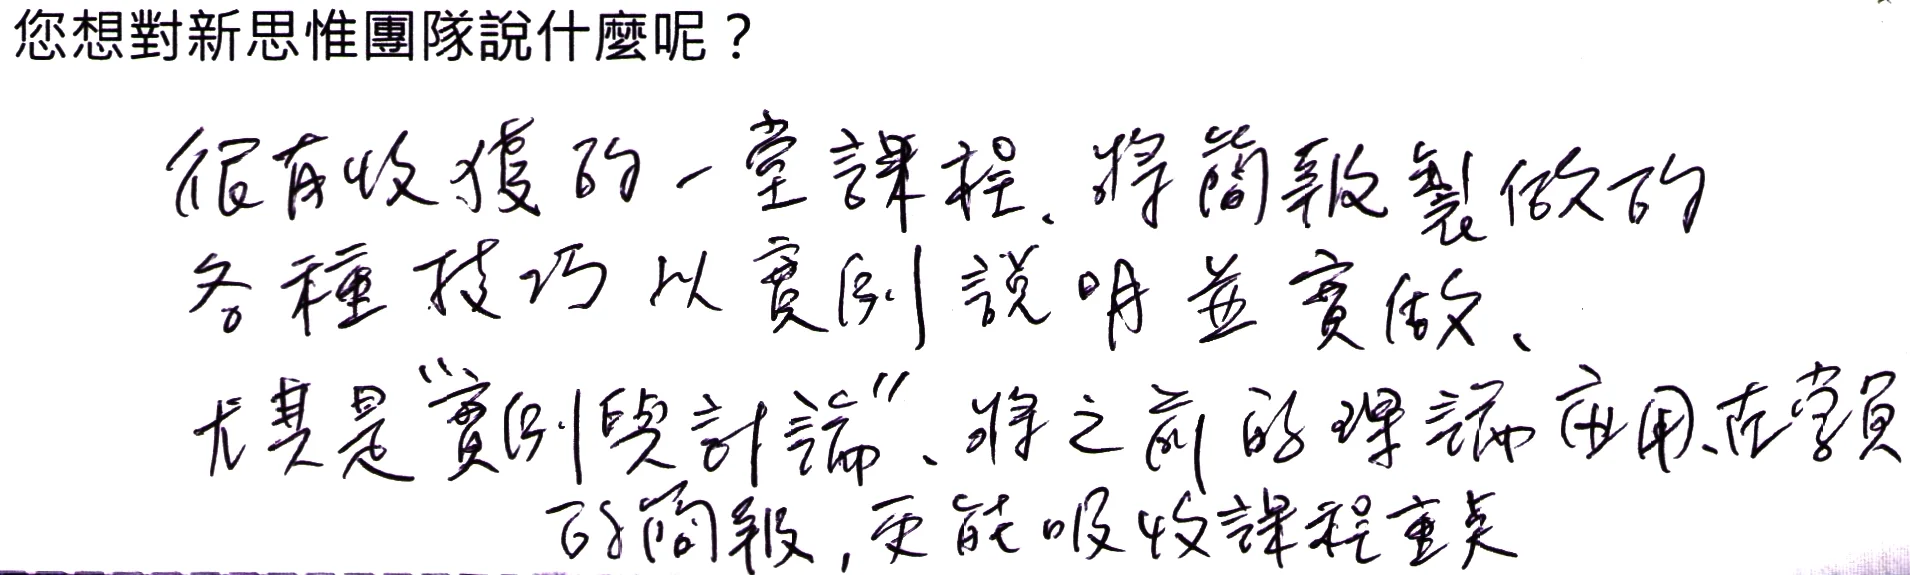 您想對新思惟團隊說什麼呢？
很有收獲的一堂課程、將簡報製做的
各種技巧以實例說明並實做、
尤其是"實例與討論"、將之前的理論應用在學員
的簡報，更能吸收課程重點